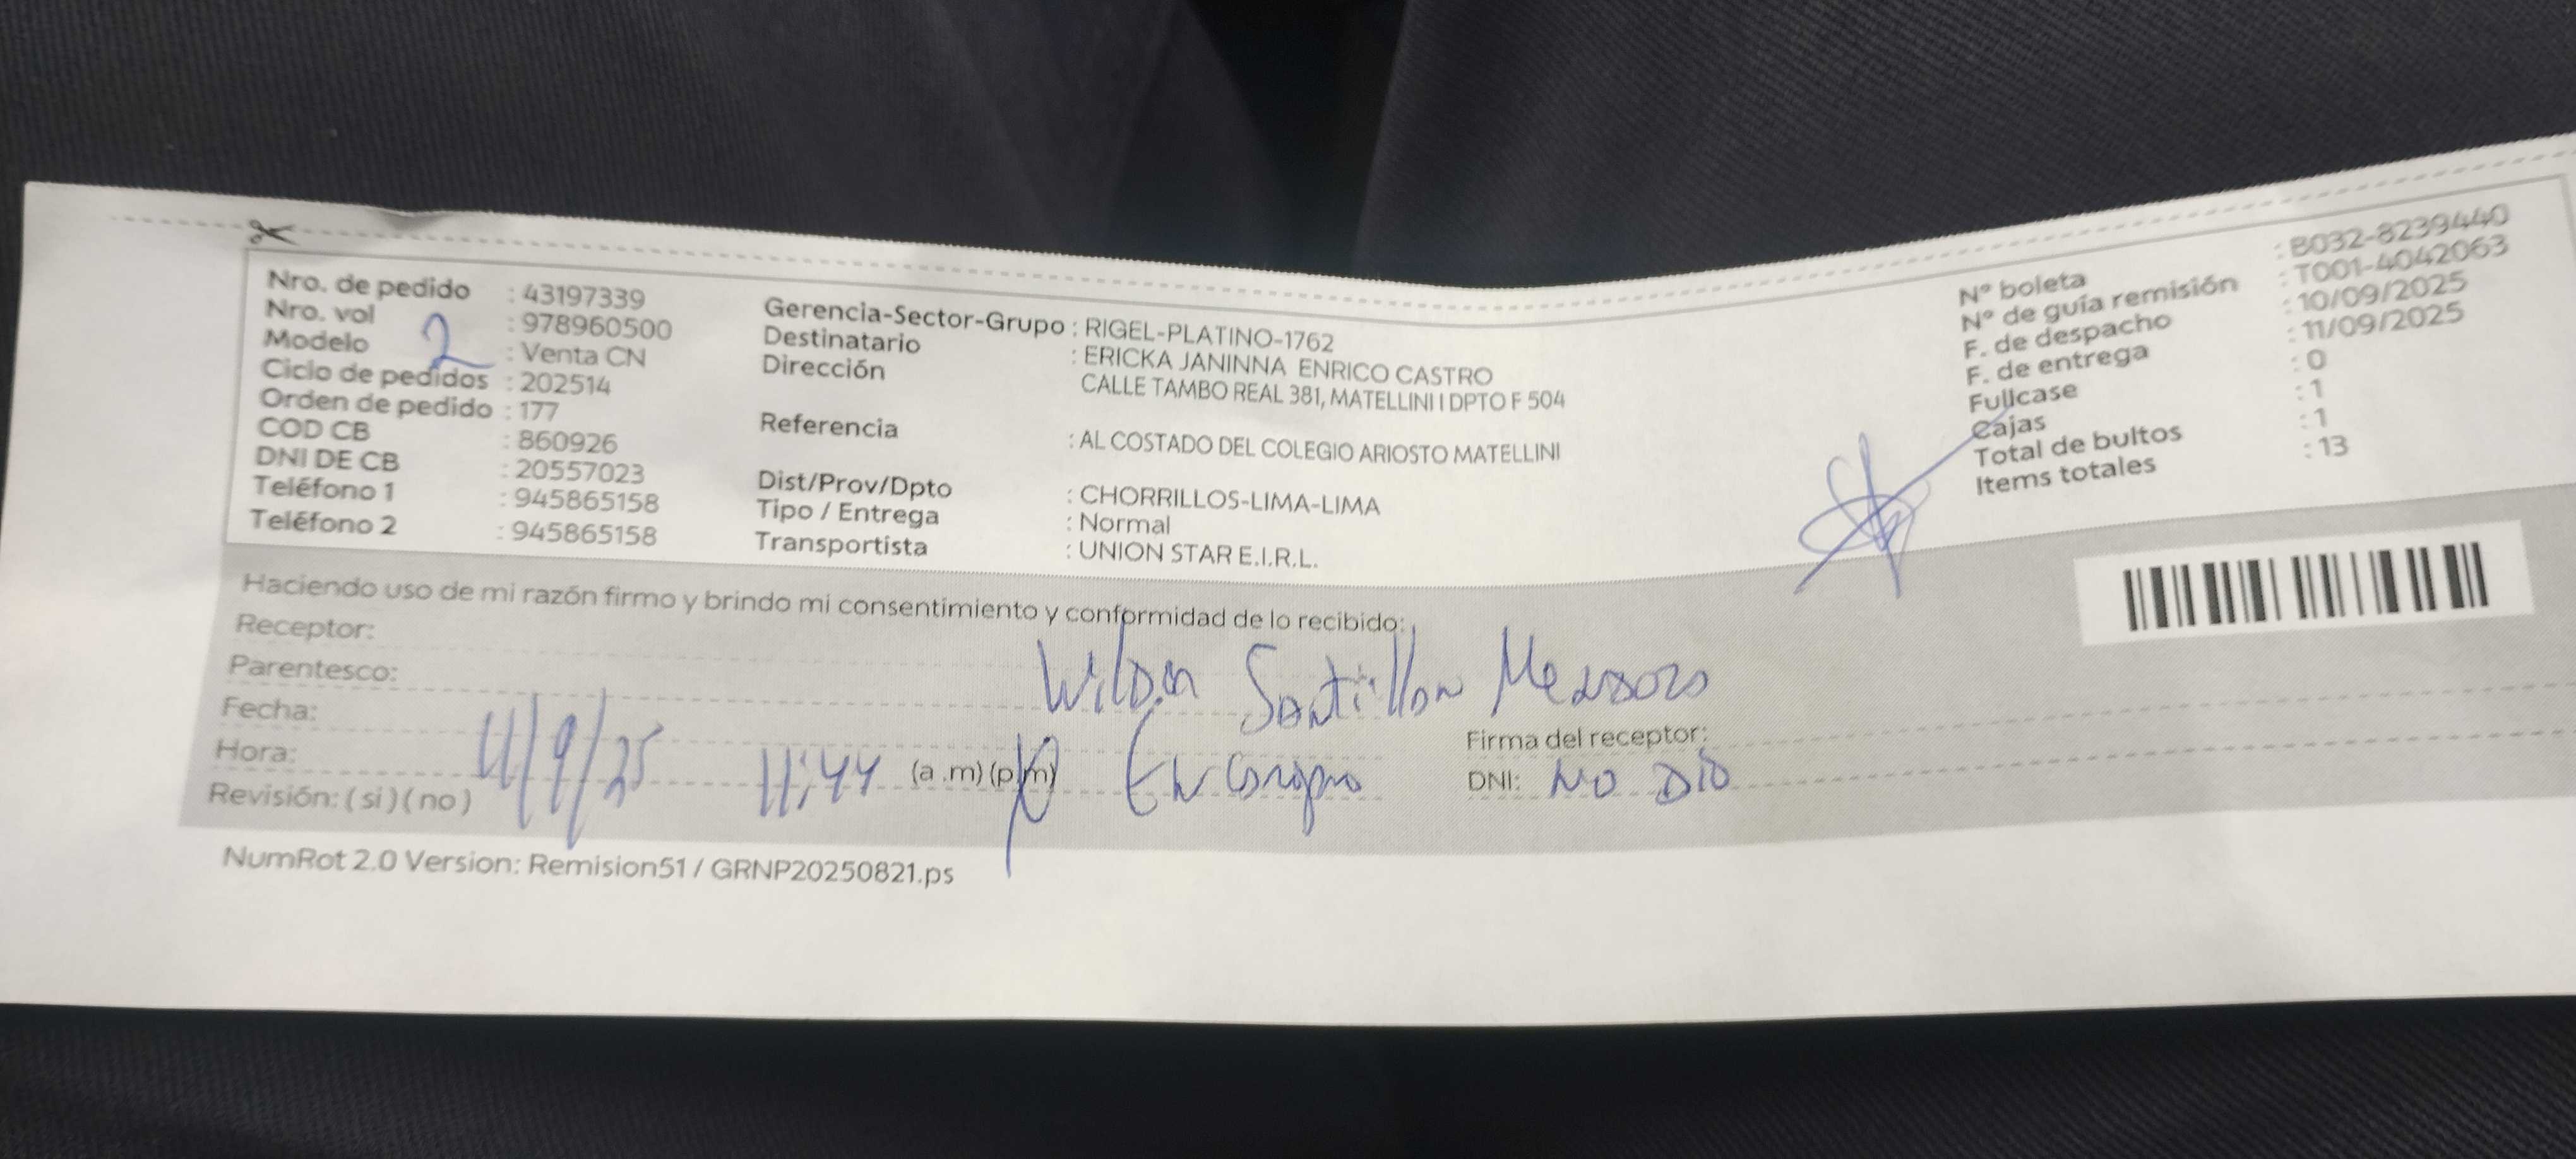 Nro. de pedido : 43197339
Nro. vol : 978960500
Modelo 2 : Venta CN
Ciclo de pedidos : 202514
Orden de pedido : 177
COD CB : 860926
DNI DE CB : 20557023
Teléfono 1 : 945865158
Teléfono 2 : 945865158
Gerencia-Sector-Grupo : RIGEL-PLATINO-1762
Destinatario : ERICKA JANINNA ENRICO CASTRO
Dirección CALLE TAMBO REAL 381, MATELLINI I DPTO F 504
Referencia : AL COSTADO DEL COLEGIO ARIOSTO MATELLINI
Dist/Prov/Dpto : CHORRILLOS-LIMA-LIMA
Tipo / Entrega : Normal
Transportista : UNION STAR E.I.R.L.
N° boleta : B032-8239440
N° de guía remisión : T001-4042063
F. de despacho : 10/09/2025
F. de entrega : 11/09/2025
Fullcase : 0
Cajas : 1
Total de bultos : 1
Items totales : 13
Haciendo uso de mi razón firmo y brindo mi consentimiento y conformidad de lo recibido:
Receptor:
Parentesco: Santillan
Fecha: 11/9/25
Hora: 11:44 (a .m) (p.m)
Revisión: ( si ) ( no )
Firma del receptor:
DNI: NO DIO
NumRot 2.0 Version: Remision51 / GRNP20250821.ps